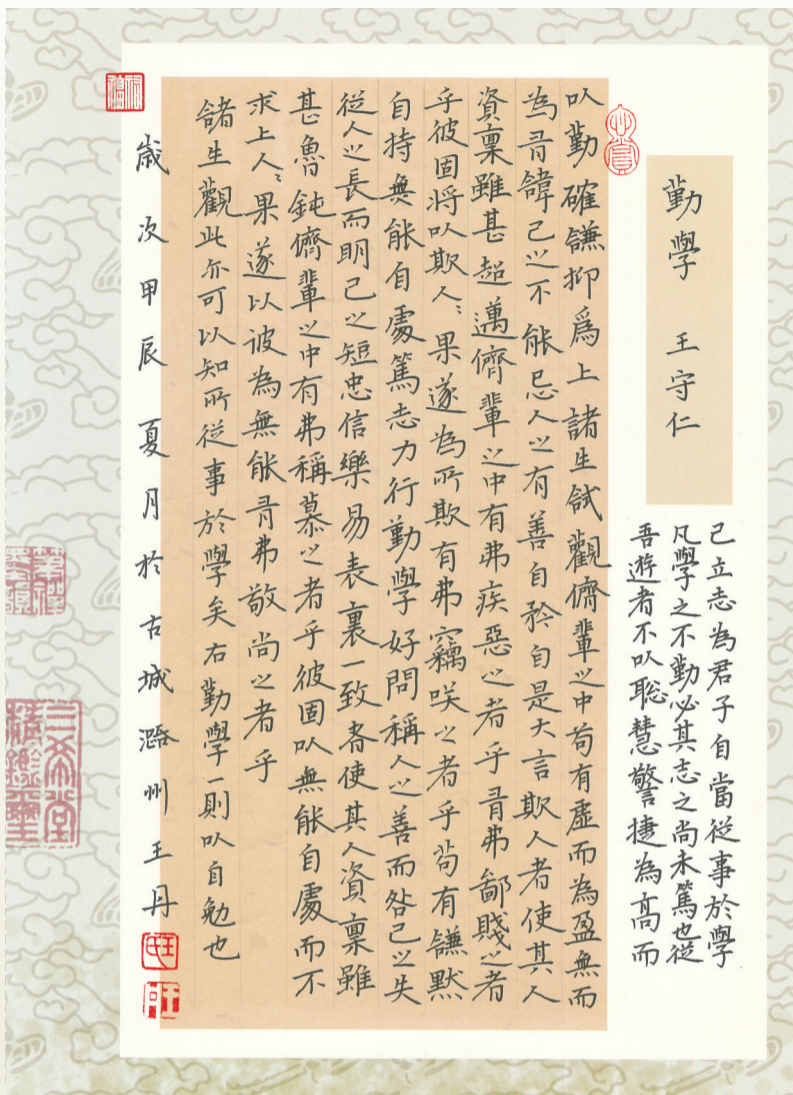 勤學 王守仁
己立志為君子自當従事於學
凡學之不勤必其志之尚未篤也従
吾遊者不以聡慧警捷為髙而
以勤確謙抑為上諸生試觀儕輩之中苟有虛而為盈無而
為有諱己之不能忌人之有善自矜自是大言欺人者使其人
資稟雖甚超邁儕輩之中有弗疾惡之者乎有弗鄙賤之者
乎彼固將以欺人〻果遂為所欺有弗竊咲之者乎苟有謙黙
自持無能自處篤志力行勤學好問稱人之善而咎己之失
従人之長而明己之短忠信樂易表裏一致者使其人資稟雖
甚魯鈍儕輩之中有弗稱慕之者乎彼固以無能自處而不
求上人〻果遂以彼為無能有弗敬尚之者乎
諸生觀此亦可以知所従事於學矣右勤學一則以自勉也
歲次甲辰夏月於古城潞州王丹
三希堂精鑑璽